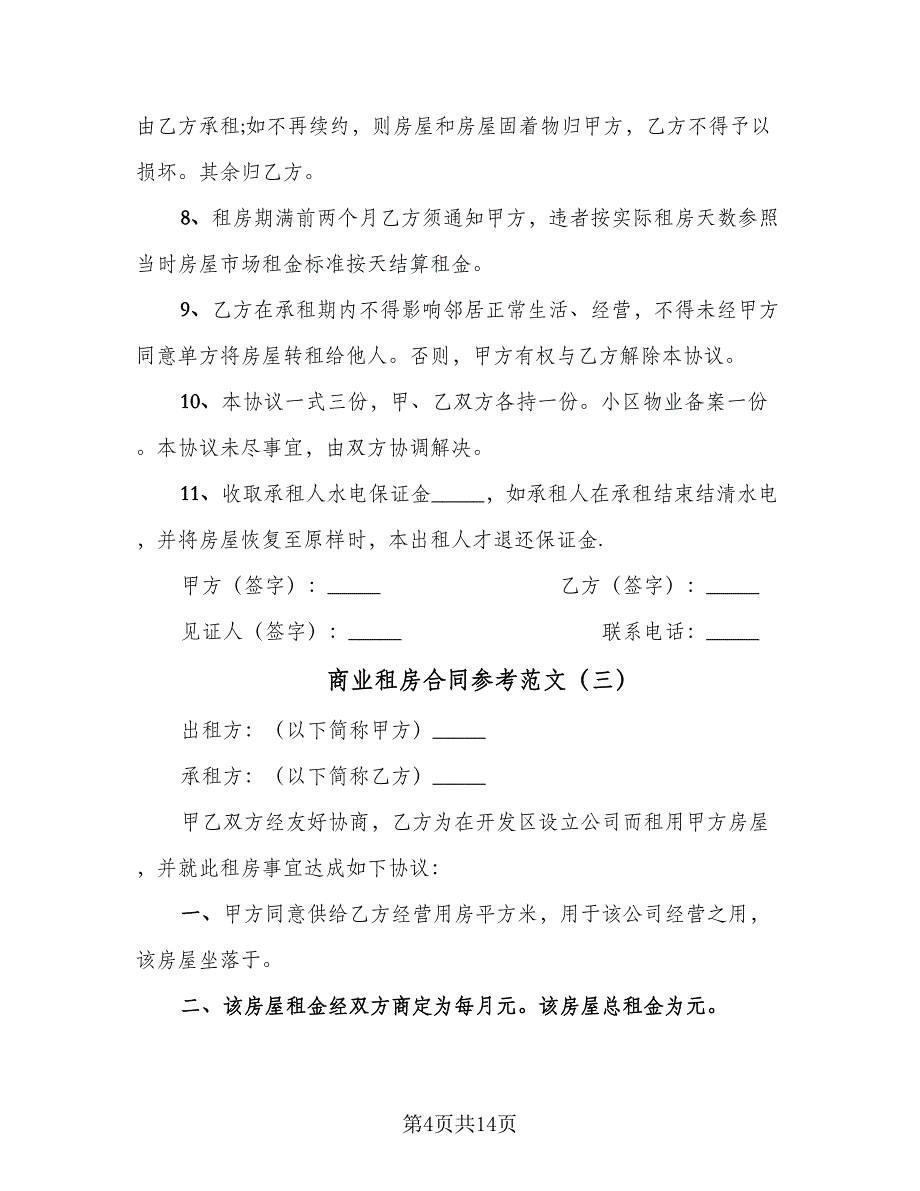 由乙方承租;如不再续约，则房屋和房屋固着物归甲方，乙方不得予以
损坏。其余归乙方。
8、租房期满前两个月乙方须通知甲方，违者按实际租房天数参照
当时房屋市场租金标准按天结算租金。
9、乙方在承租期内不得影响邻居正常生活、经营，不得未经甲方
同意单方将房屋转租给他人。否则，甲方有权与乙方解除本协议。
10、本协议一式三份，甲、乙双方各持一份。小区物业备案一份
。本协议未尽事宜，由双方协调解决。
11、收取承租人水电保证金_____，如承租人在承租结束结清水电
，并将房屋恢复至原样时，本出租人才退还保证金.
甲方（签字）：_____ 乙方（签字）：_____
见证人（签字）：_____ 联系电话：_____
商业租房合同参考范文（三）
出租方：（以下简称甲方）_____
承租方：（以下简称乙方）_____
甲乙双方经友好协商，乙方为在开发区设立公司而租用甲方房屋
，并就此租房事宜达成如下协议：
一、甲方同意供给乙方经营用房平方米，用于该公司经营之用，
该房屋坐落于。
二、该房屋租金经双方商定为每月元。该房屋总租金为元。
第4页共14页